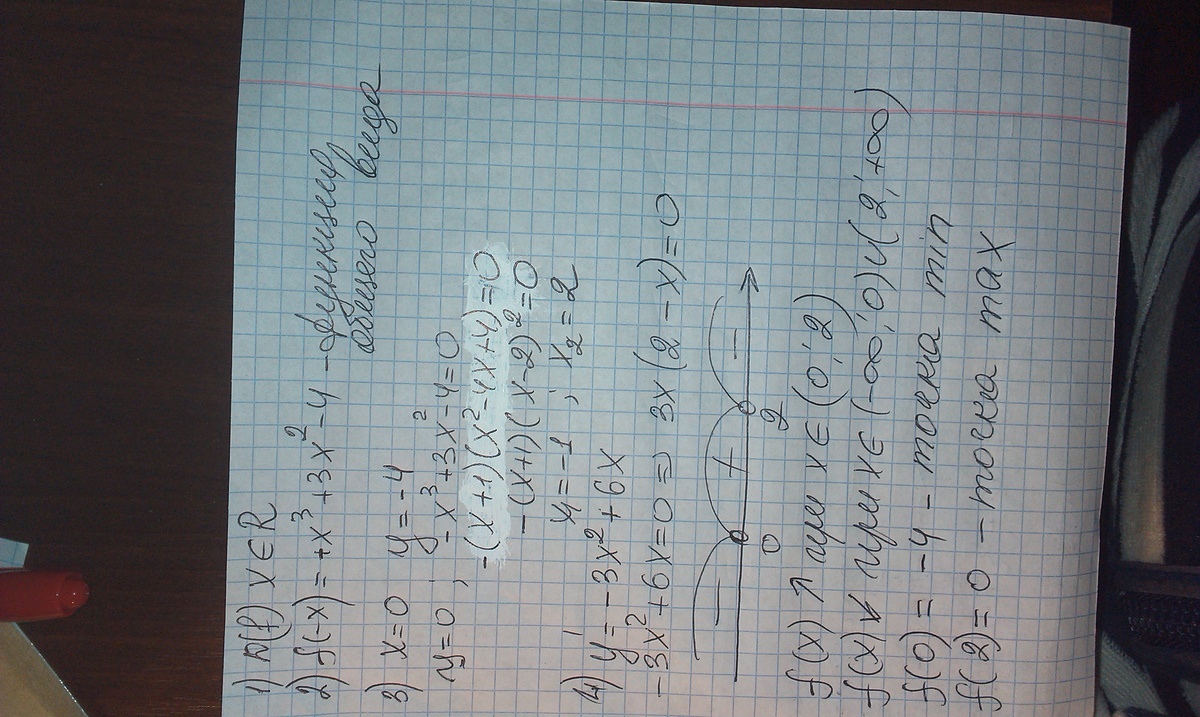 1) D(f) x ∈ R
2) f(-x) = +x³ + 3x² - 4 - функция
общего вида
3) x = 0 y = -4
y = 0 ; -x³ + 3x² - 4 = 0
-(x+1)(x² - 4x + 4) = 0
-(x+1)(x-2)² = 0
x₁ = -1 ; x₂ = 2
4) y' = -3x² + 6x
-3x² + 6x = 0 => 3x(2 - x) = 0
- + -
0 2
f(x) ↑ при x ∈ (0; 2)
f(x) ↓ при x ∈ (-∞; 0) ∪ (2; +∞)
f(0) = -4 - точка min
f(2) = 0 - точка max